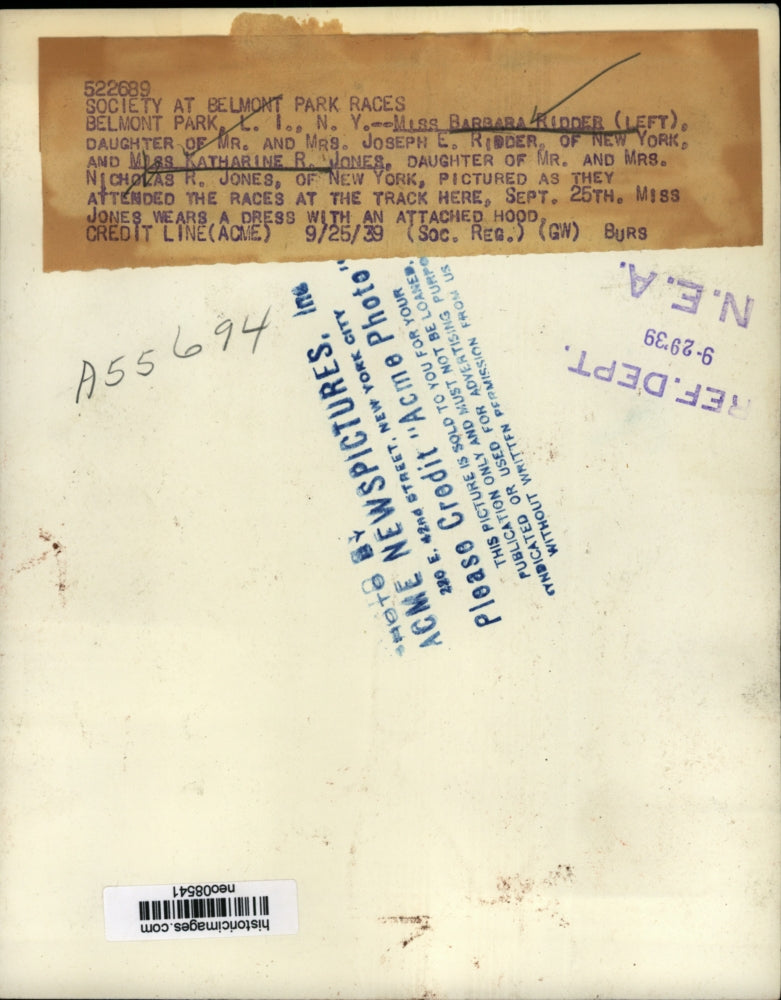 522689
SOCIETY AT BELMONT PARK RACES
BELMONT PARK, L. I., N. Y.--MISS BARBARA RIDDER (LEFT),
DAUGHTER OF MR. AND MRS. JOSEPH E. RIDDER, OF NEW YORK,
AND MISS KATHARINE R. JONES, DAUGHTER OF MR. AND MRS.
NICHOLAS R. JONES, OF NEW YORK, PICTURED AS THEY
ATTENDED THE RACES AT THE TRACK HERE, SEPT. 25TH. MISS
JONES WEARS A DRESS WITH AN ATTACHED HOOD.
CREDIT LINE(ACME) 9/25/39 (SOC. REG.) (GW) BURS
A55694
PHOTO BY
ACME NEWSPICTURES, Inc
220 E. 42nd STREET, NEW YORK CITY
Please Credit "Acme Photo"
THIS PICTURE IS SOLD TO YOU FOR YOUR
PUBLICATION ONLY AND MUST NOT BE LOANED,
SYNDICATED OR USED FOR ADVERTISING PURPO
WITHOUT WRITTEN PERMISSION FROM US.
N.E.A.
9-29'39
REF.DEPT.
historicimages.com
neo08541